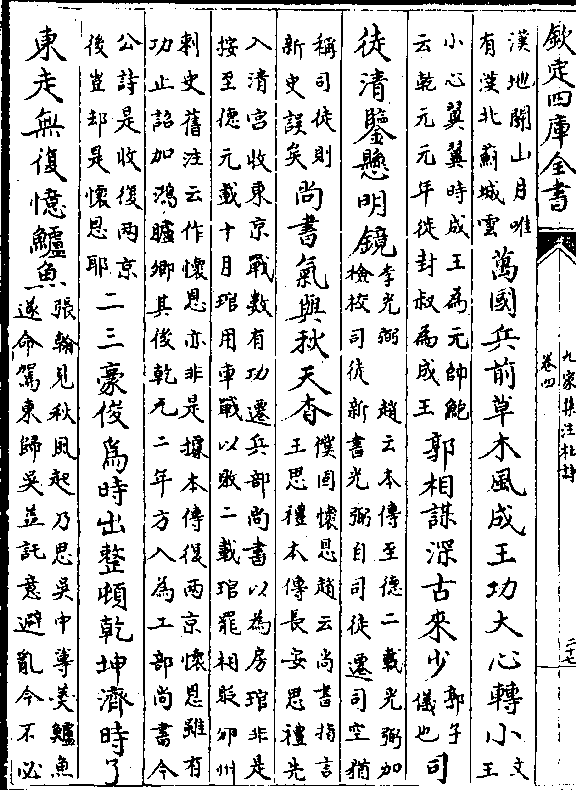 欽定四庫全書
九家集注杜詩
卷四
二十七
漢地關山月唯
有漢北薊城雲
萬國兵前草木風成王功大心轉小
文
王
小心翼翼時成王為元帥鮑
云乾元元年徙封叔為成王
郭相謀深古來少
郭子
儀也
司
徒清鑒懸明鏡
李光弼
檢校司徒
趙云本傳至德二載光弼加
新書光弼自司徒遷司空猶
稱司徒則
新史誤矣
尚書氣與秋天杳
僕固懷恩趙云尚書指言
王思禮本傳長安思禮先
入清宮收東京戰數有功遷兵部尚書以為房琯非是
按至德元載十月琯用車戰以敗二載琯罷相貶邠州
刺史舊注云作懷恩亦非是據本傳復兩京懷恩雖有
功止詔加鴻臚卿其後乾元二年方入為工部尚書今
公詩是收復兩京
後豈却是懷恩耶
二三豪俊為時出整頓乾坤濟時了
東走無復憶鱸魚
張翰見秋風起乃思吳中蓴羹鱸魚
遂命駕東歸吳並託意避亂今不必